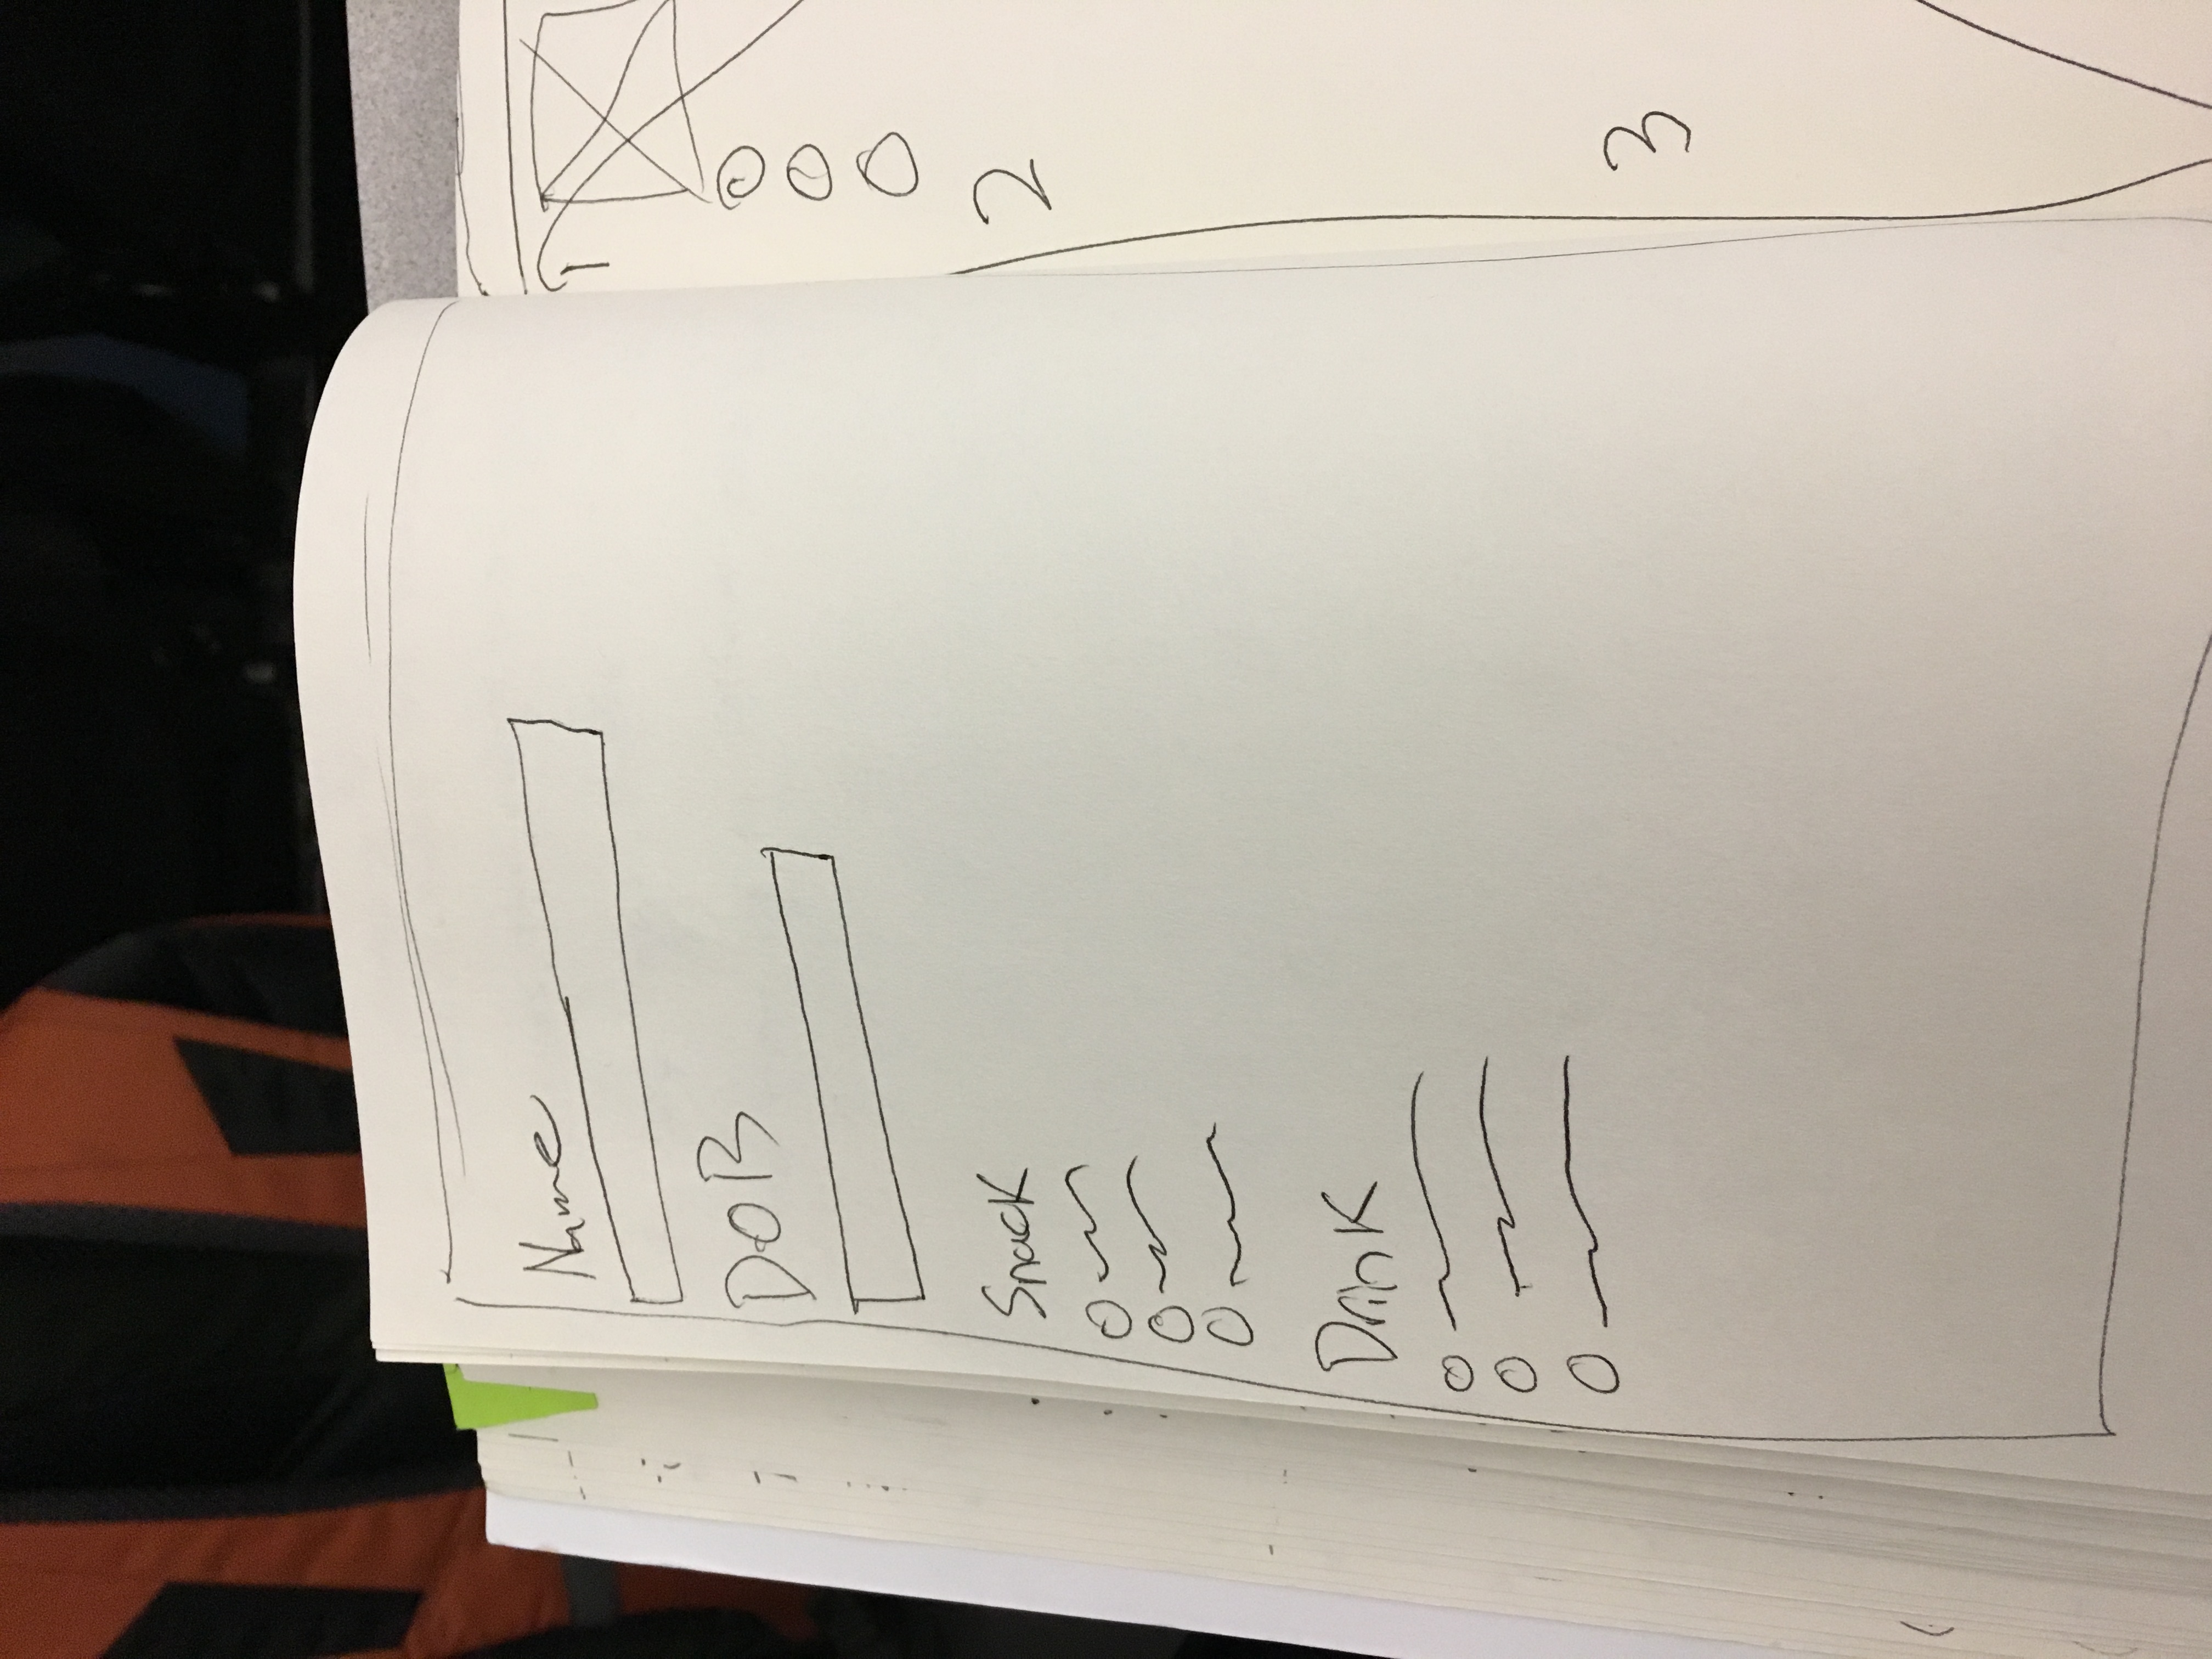 Name
DOB
Snack
Drink
1
2
3